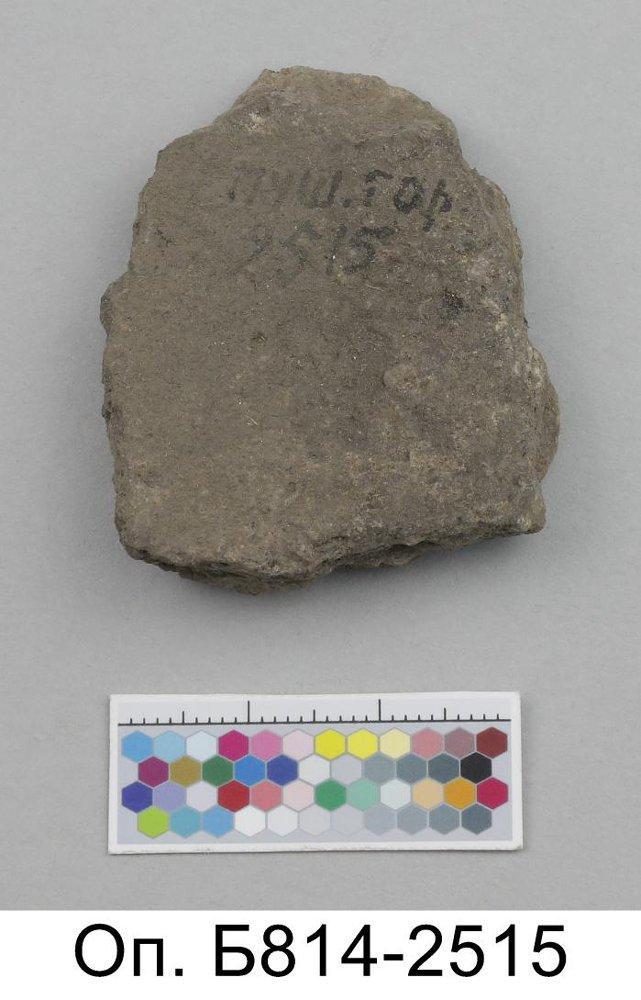 Пуш.Гор.
2515
Оп. Б814-2515